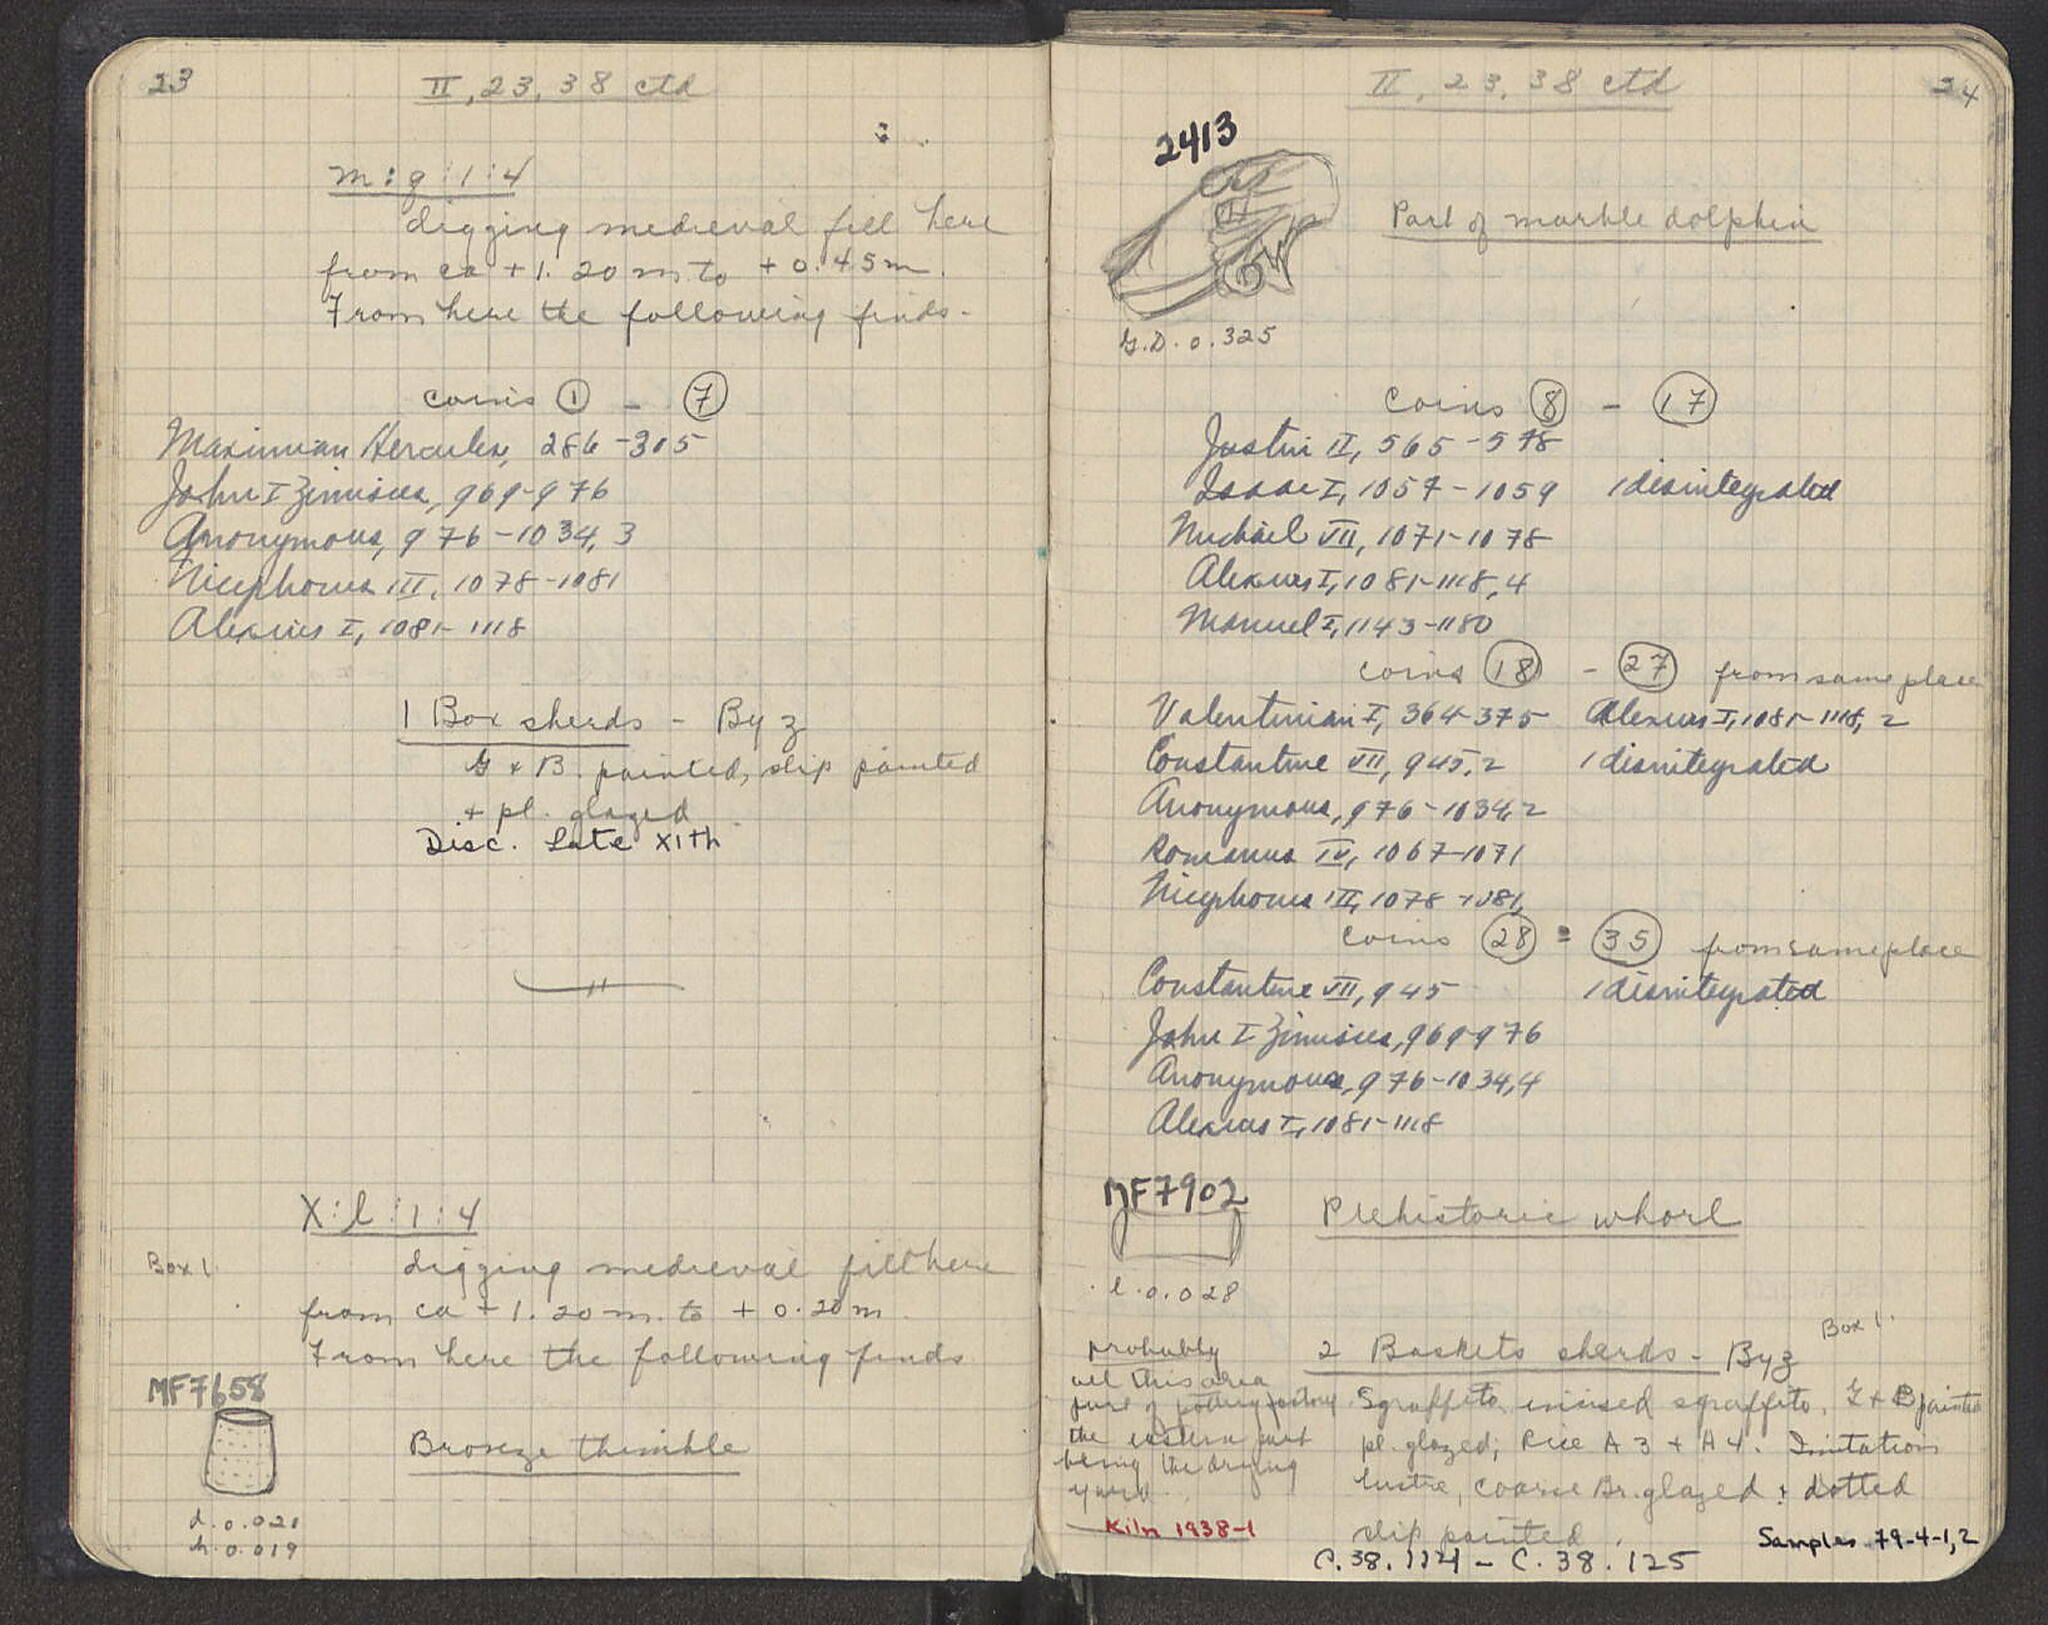 23
II, 23, 38 ctd
m:g:1:4
digging medieval fill here
from ca +1.20 m to +0.45m.
From here the following finds.
coins ① - ⑦
Maximian Hercules, 286-305
John I Zimisces, 969-976
Anonymous, 976-1034, 3
Nicephorus III, 1078-1081
Alexius I, 1081-1118
1 Box sherds - Byz
G + B. painted, slip painted
+ pl. glazed
Disc. Late XIth
X:l:1:4
Box 1
digging medieval fill here
from ca +1.20 m. to +0.20 m.
From here the following finds
MF7658
Bronze thimble
d. 0.021
h. 0.019
II, 23, 38 ctd
24
2413
Part of marble dolphin
G.D. 0.325
coins ⑧ - ⑰
Justin II, 565-578
Isaac I, 1057-1059 1 disintegrated
Michael VII, 1071-1078
Alexius I, 1081-1118, 4
Manuel I, 1143-1180
coins ⑱ - ㉗ from same place
Valentinian I, 364-375 Alexius I, 1081-1118, 2
Constantine VII, 945, 2 1 disintegrated
Anonymous, 976-1034, 2
Romanus IV, 1067-1071
Nicephorus III, 1078-1081,
coins ㉘ - ㉟ from same place
Constantine VII, 945 1 disintegrated
John I Zimisces, 969-976
Anonymous, 976-1034, 4
Alexius I, 1081-1118
MF7902
Prehistoric whorl
l. 0.028
Box 1.
2 Baskets sherds - Byz
Sgraffito, incised sgraffito, G + B painted
pl. glazed; Rice A 3 + A 4. Imitation
lustre, coarse Br. glazed + dotted
slip painted.
C.38.124 - C.38.125
Samples 79-4-1,2
probably
all this area
part of pottery factory
the eastern part
being the drying
yard.
Kiln 1938-1